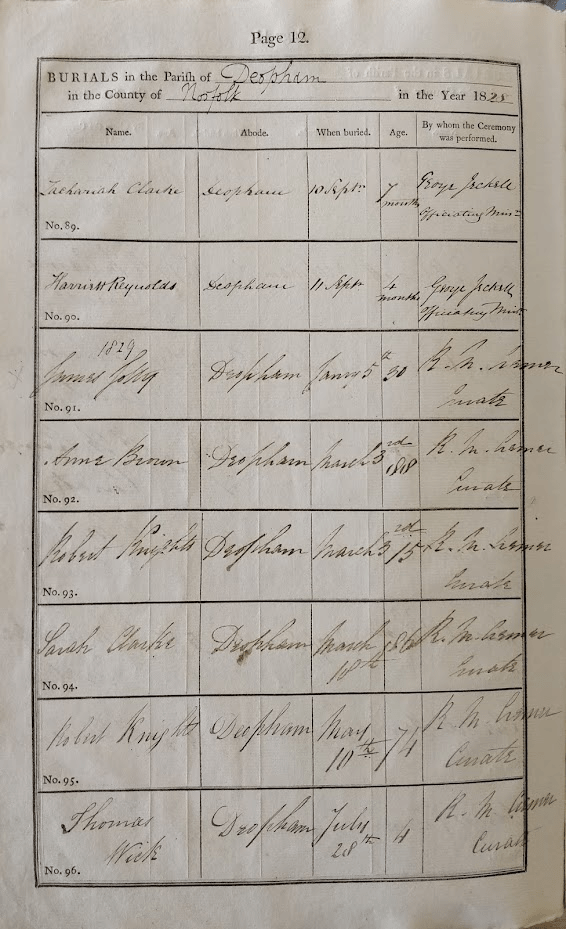 Page 12.
BURIALS in the Parish of Deopham
in the County of Norfolk in the Year 1828
Name. Abode. When buried. Age. By whom the Ceremony was performed.
Zachariah Clarke Deopham 10 Septr 7 months George Jeckell
Officiating Minr
No. 89.
Harriett Reynolds Deopham 11 Septr 4 months George Jeckell
Officiating Minr
No. 90.
1829
James Deopham Jany 5th 30 R. M. Cremer
Curate
No. 91.
Anne Brown Deopham March 3rd R. M. Cremer
Curate
No. 92.
Robert Knights Deopham March 3rd 15 R. M. Cremer
Curate
No. 93.
Sarah Clarke Deopham March 18th R. M. Cremer
Curate
No. 94.
Robert Knights Deopham May 10th 74 R M Cremer
Curate
No. 95.
Thomas Wick Deopham July 28th 4 R. M Cremer
Curate
No. 96.